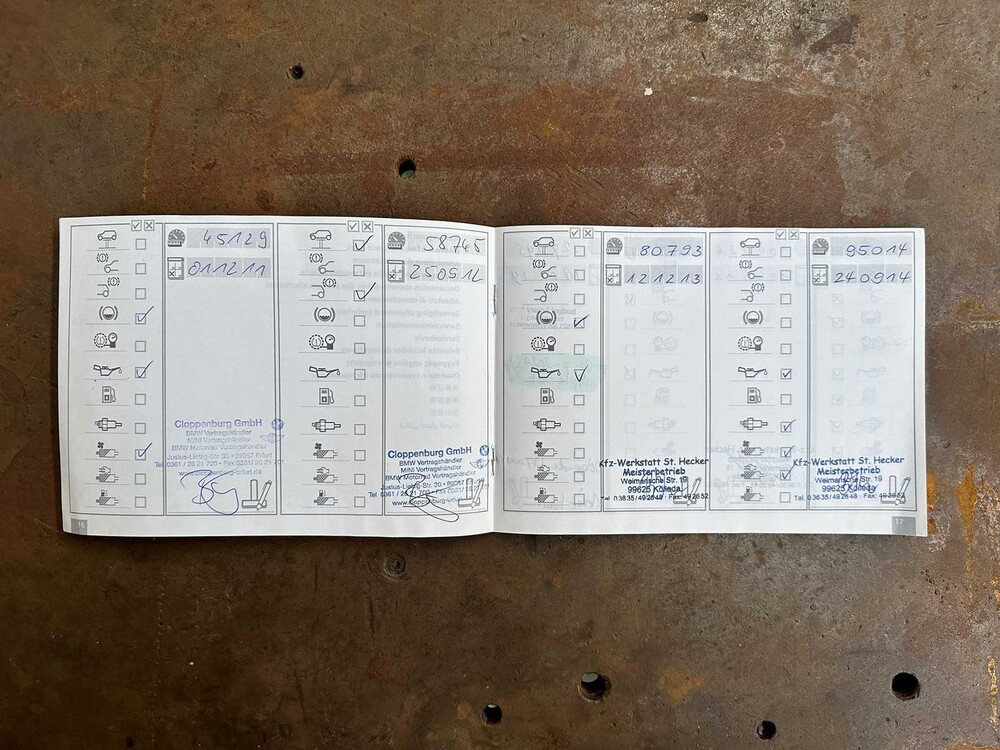 45129
011211
Cloppenburg GmbH
BMW Vertragshändler
MINI Vertragshändler
BMW Motorrad Vertragshändler
Justus-Liebig-Str. 35 • 99087 Erfurt
Tel. 0361 / 26 21 720 • Fax 0361/ 26 21 701
16
58745
Cloppenburg GmbH
BMW Vertragshändler
MINI Vertragshändler
BMW Motorrad Vertragshändler
Justus-Liebig-Str.
80793
121213
Kfz-Werkstatt St. Hecker
Meisterbetrieb
Weimarische Str. 19
99625 Kölleda
95014
240914
Kfz-Werkstatt St. Hecker
Meisterbetrieb
Weimarische Str. 19
99625 Kölleda
Tel. 03635/492648 Fax: 492652
17